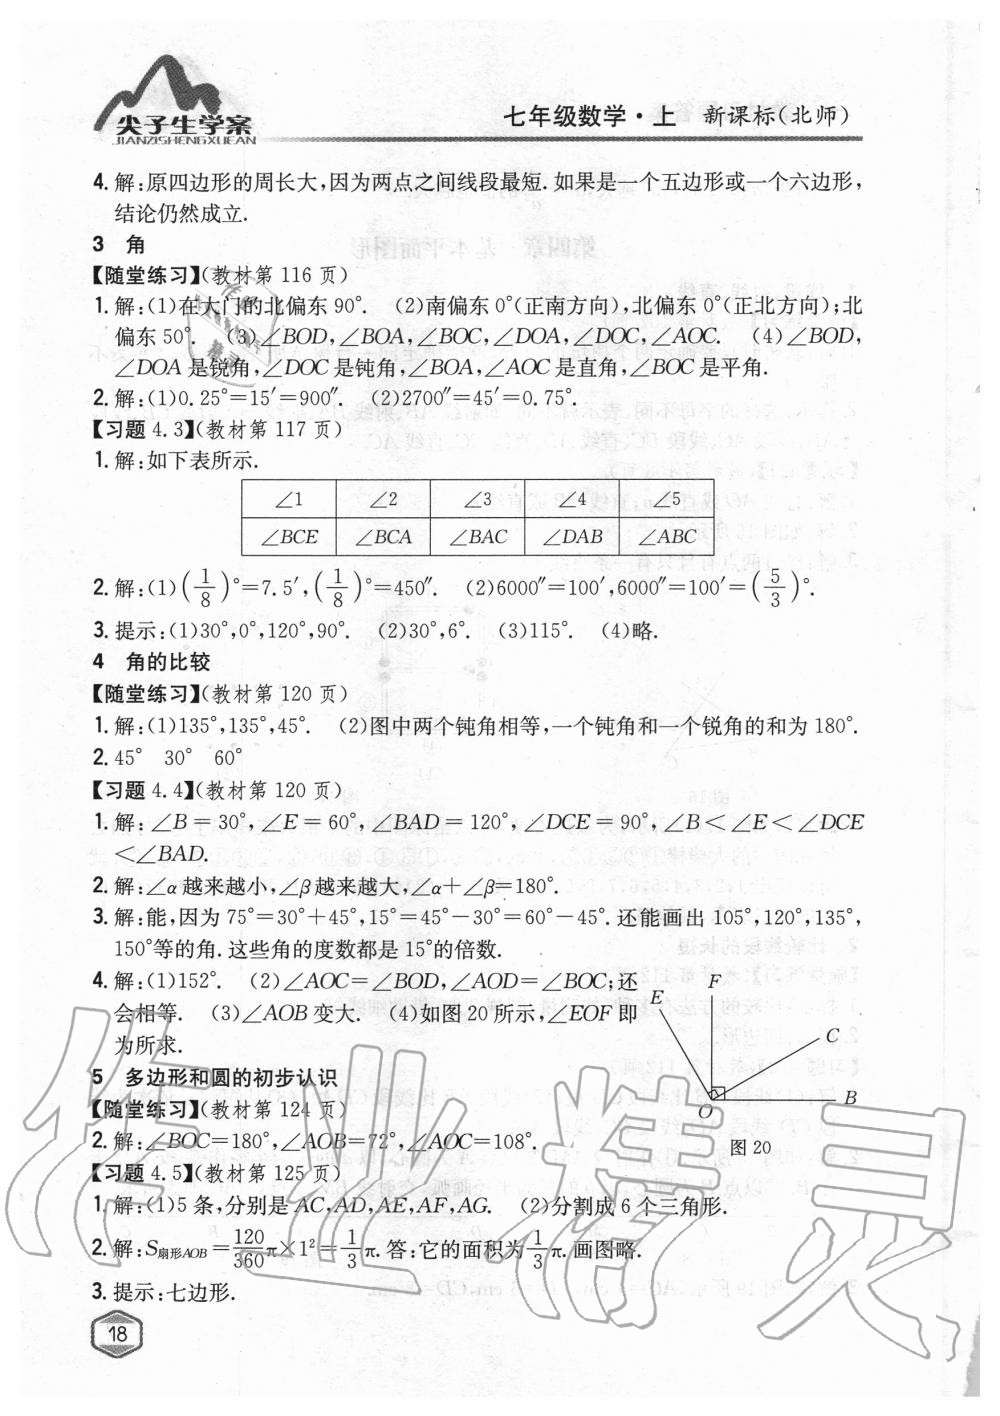 尖子生学案
JIANZISHENGXUEAN
七年级数学·上 新课标(北师)
4.解:原四边形的周长大,因为两点之间线段最短.如果是一个五边形或一个六边形,
结论仍然成立.
3 角
【随堂练习】(教材第 116 页)
1.解:(1)在大门的北偏东 90°. (2)南偏东 0°(正南方向),北偏东 0°(正北方向);北
偏东 50°. (3)∠BOD,∠BOA,∠BOC,∠DOA,∠DOC,∠AOC. (4)∠BOD,
∠DOA 是锐角,∠DOC 是钝角,∠BOA,∠AOC 是直角,∠BOC 是平角.
2.解:(1)0.25°=15′=900″. (2)2700″=45′=0.75°.
【习题 4.3】(教材第 117 页)
1.解:如下表所示.
∠1 ∠2 ∠3 ∠4 ∠5
∠BCE ∠BCA ∠BAC ∠DAB ∠ABC
2.解:(1)(1/8)°=7.5′,(1/8)°=450″. (2)6000″=100′,6000″=100′=(5/3)°.
3.提示:(1)30°,0°,120°,90°. (2)30°,6°. (3)115°. (4)略.
4 角的比较
【随堂练习】(教材第 120 页)
1.解:(1)135°,135°,45°. (2)图中两个钝角相等,一个钝角和一个锐角的和为 180°.
2.45° 30° 60°
【习题 4.4】(教材第 120 页)
1.解:∠B=30°,∠E=60°,∠BAD=120°,∠DCE=90°,∠B<∠E<∠DCE
<∠BAD.
2.解:∠α越来越小,∠β越来越大,∠α+∠β=180°.
3.解:能,因为 75°=30°+45°,15°=45°-30°=60°-45°.还能画出 105°,120°,135°,
150°等的角.这些角的度数都是 15°的倍数.
4.解:(1)152°. (2)∠AOC=∠BOD,∠AOD=∠BOC;还
会相等. (3)∠AOB 变大. (4)如图 20 所示,∠EOF 即
为所求.
E F
C
O B
图 20
5 多边形和圆的初步认识
【随堂练习】(教材第 124 页)
2.解:∠BOC=180°,∠AOB=72°,∠AOC=108°.
【习题 4.5】(教材第 125 页)
1.解:(1)5 条,分别是 AC,AD,AE,AF,AG. (2)分割成 6 个三角形.
2.解:S扇形AOB=120/360π×1²=1/3π.答:它的面积为1/3π.画图略.
3.提示:七边形.
18
作业精灵